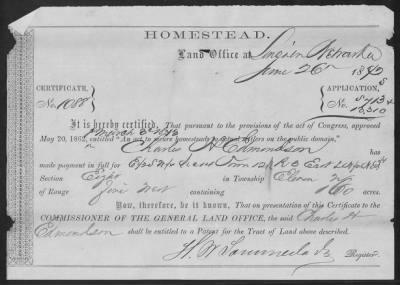 HOMESTEAD.
Land Office at Lincoln Nebraska
June 26th 18
CERTIFICATE, No. 1088
APPLICATION, No. 5713 & 13,310
It is hereby certified, That pursuant to the provisions of the act of Congress, approved
May 20, 1862, entitled "An act to secure homesteads to actual settlers on the public domain,"
Charles H Edmondson has
made payment in full for of
Section Eight in Township Eleven
of Range Five West containing 160 acres.
Now, therefore, be it known, That on presentation of this Certificate to the
COMMISSIONER OF THE GENERAL LAND OFFICE, the said Charles H
Edmondson shall be entitled to a Patent for the Tract of Land above described.
Register.